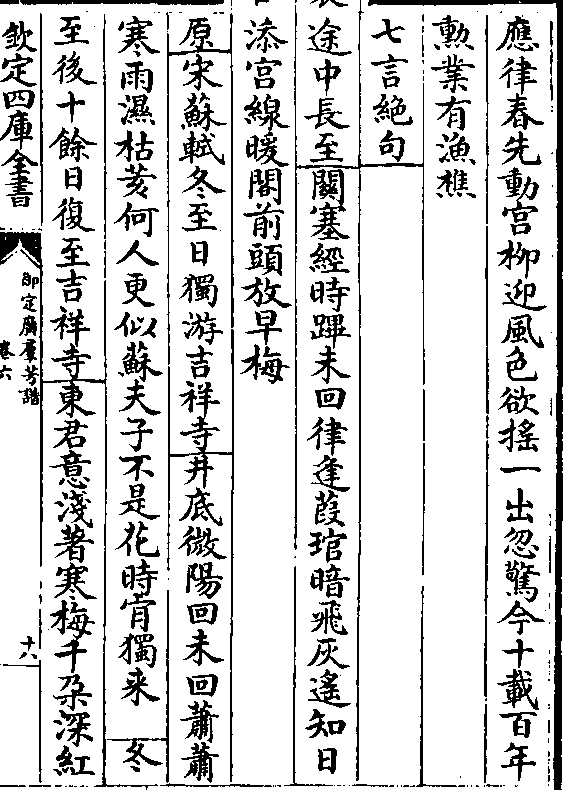 應律春先動宫柳迎風色欲摇一出忽驚今十載百年
勲業有漁樵
七言絶句
途中長至關塞經時蹕未回律逢葭琯暗飛灰遙知日
添宫線暖閣前頭放早梅
原宋蘇軾冬至日獨游吉祥寺井底微陽回未回蕭蕭
寒雨濕枯荄何人更似蘇夫子不是花時肯獨来 冬
至後十餘日復至吉祥寺東君意淺著寒梅千朶深紅
欽定四庫全書
御定廣羣芳譜
卷六
十六